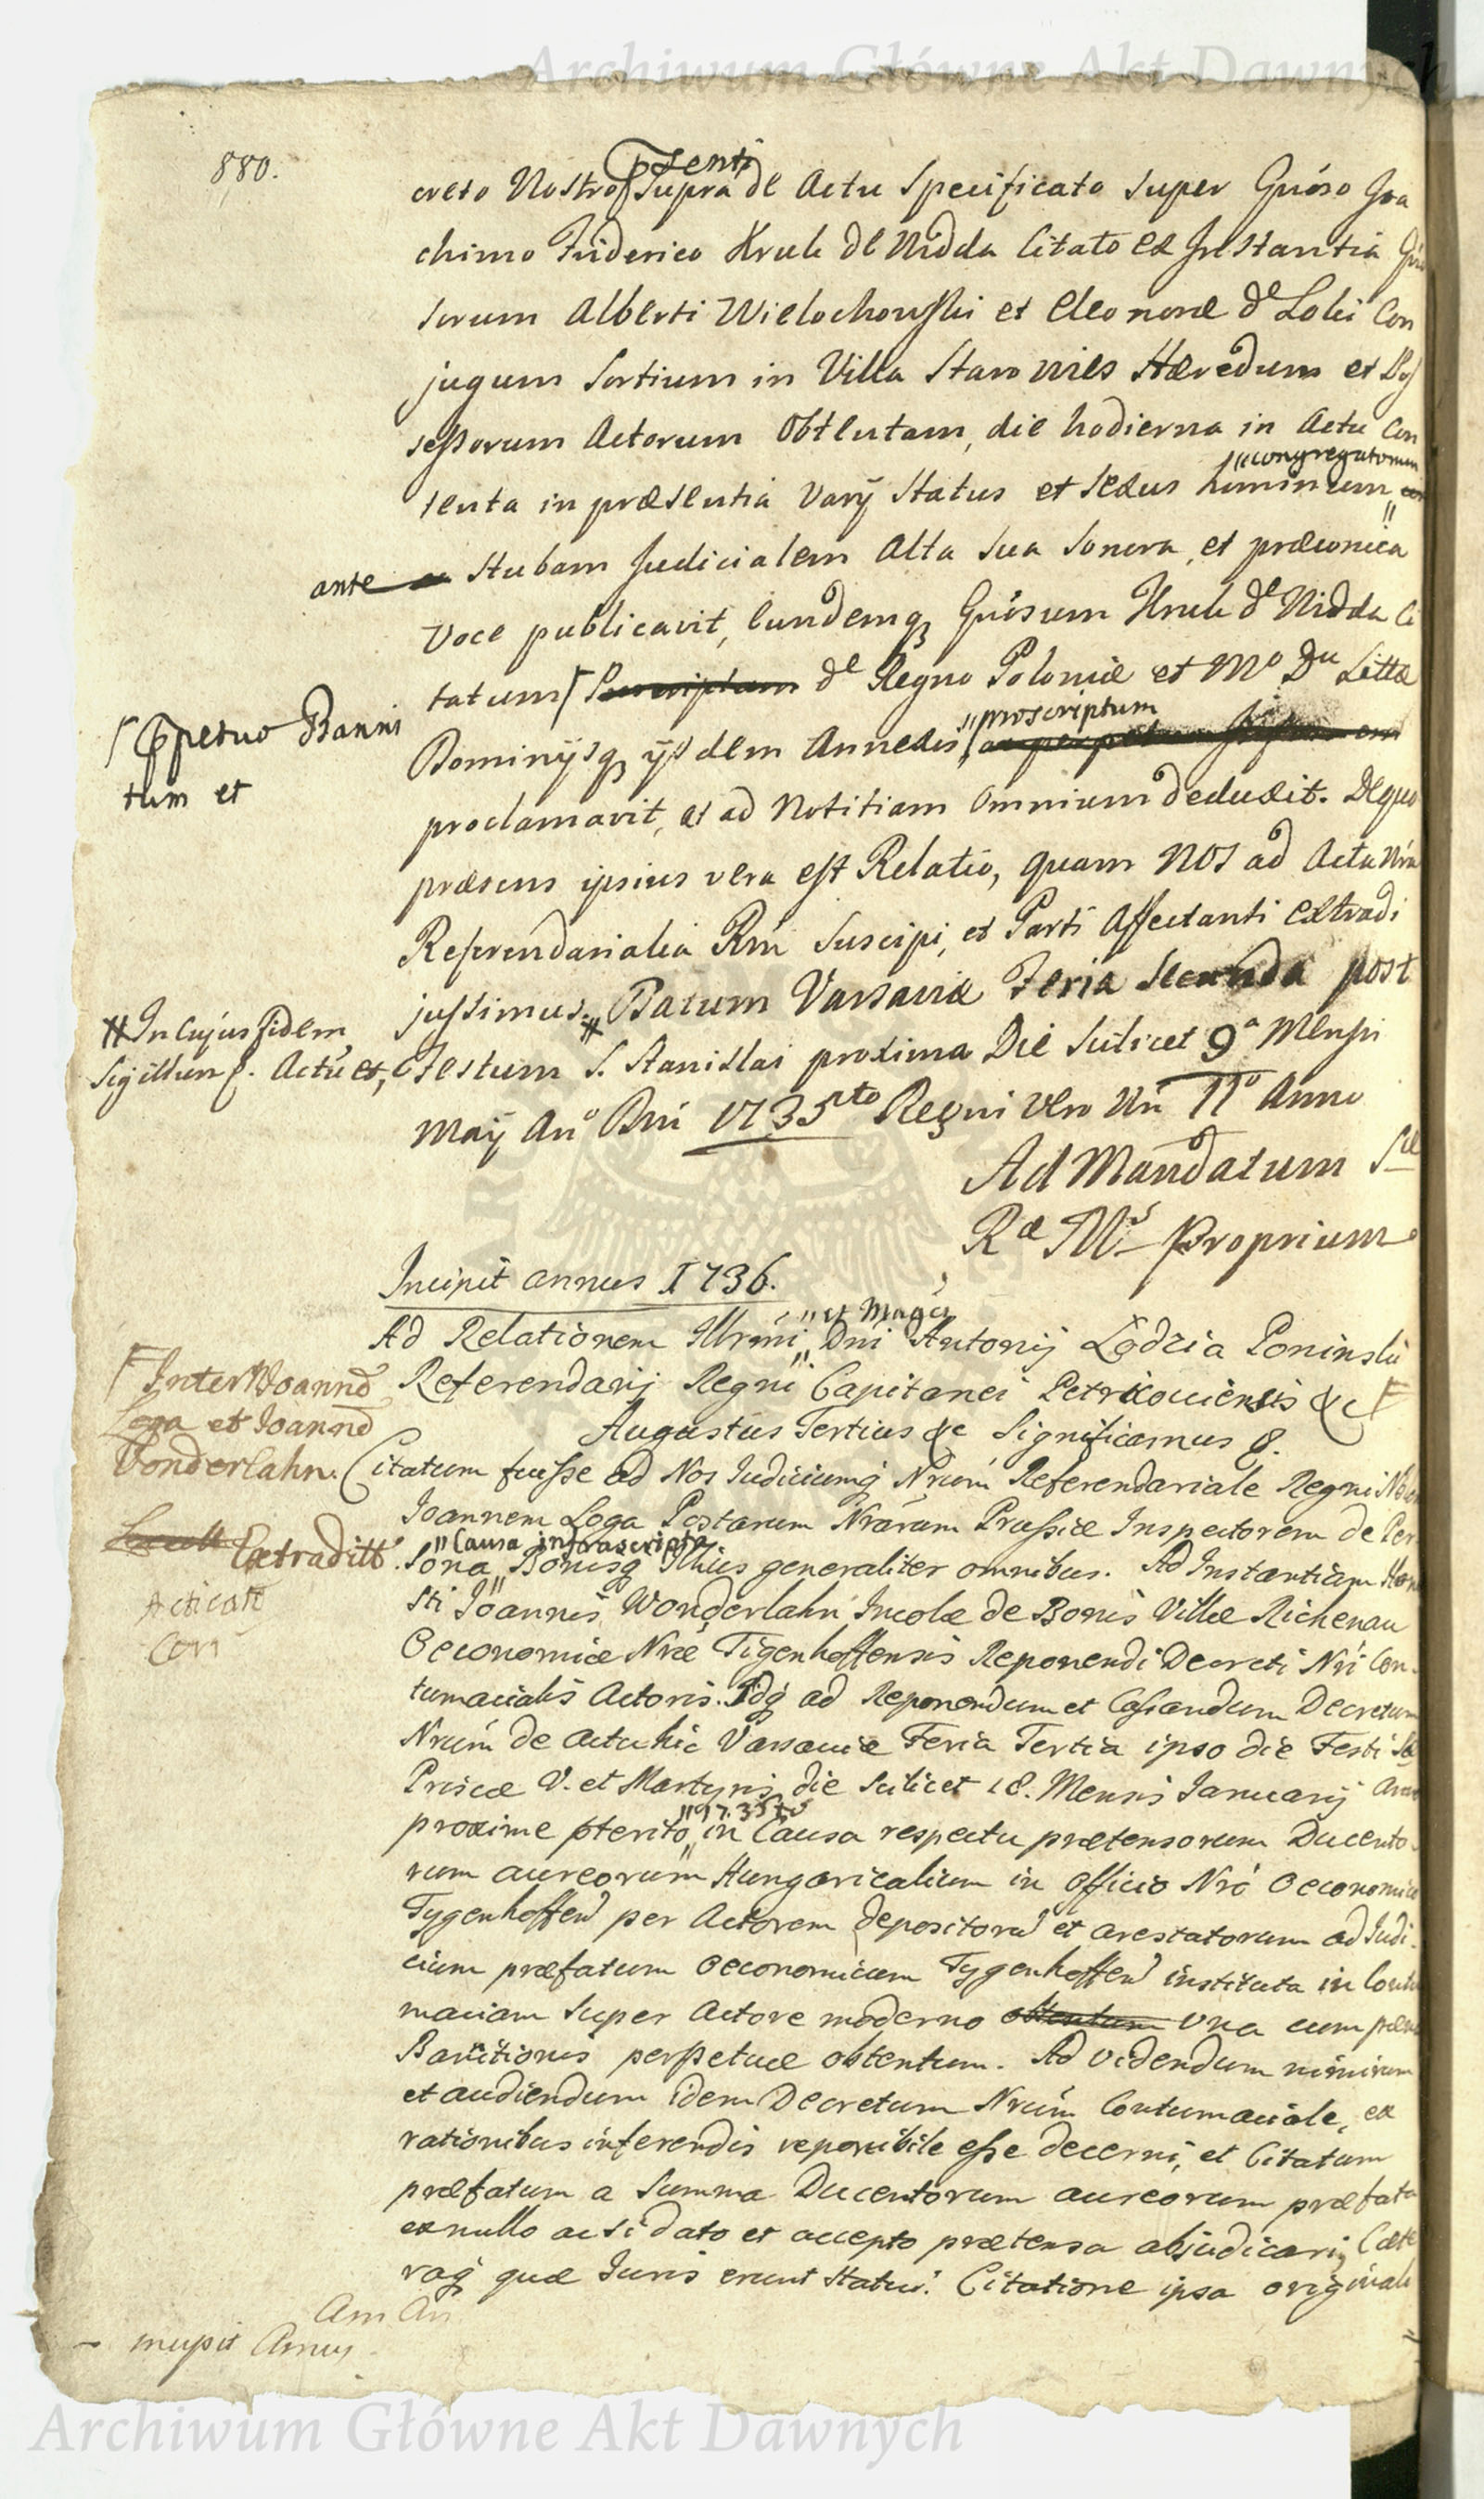 Archiwum Główne Akt Dawnych
880.
psenti
creto Nostro Supra de Actu Specificato super Gnóso Joa
chimo Friderico Kruk de Nidda Citato ex Instantia Gno
sorum Alberti Wielochowski et Eleonoræ de Loki Con
jugum Sortium in Villa Staro wies Hæredum et Pos
sessorum Actorum Obtentam, die hodierna in Actu Con
congregatorum
tenta in præsentia Varÿ Status et sexus hominum
ante Stubam Judicialem Alta sua Sonora, et præconica
Voce publicavit, Eundemq Gnósum Kruk de Nidda Ci
tatum de Regno Poloniæ et Mo Du Littæ
ppetuo Banni
tum et
proscriptum
Dominijsq ijsdem Annexis
proclamavit, et ad Notitiam Omnium deduxit. De quo
præsens ipsius vera est Relatio, quam NOS ad Acta Nra
Referendarialia Rni Suscipi, et Parti Affectanti Extradi
jussimus. Datum Varsaviæ Feria Secunda post
# In Cujus fidem
Sigillum p. Actu est,
Festum S. Stanislai proxima Die Scilicet 9a Mensis
Maÿ Ano Dni 1735to Regni Vero Nri IIo Anno
Ad Mandatum Sæ
Ræ Mtis proprium
Incipit annus 1736.
et Magci
Ad Relationem Illrmi Dni Antonij Lodzia Poninski
Referendarij Regni Capitanei Petricoviensis &c
Inter Joannē
Loga et Joannē
Vonderlahn.
Augustus Tertius &c Significamus &.
Citatum fuisse ad Nos Judiciumq Nrum Referendariale Regni
Joannem Loga Postarum Nrarum Prussiæ Inspectorem de Per
Causa infrascripta
Extraditt.
sona Bonisq Illius generaliter omnibus. Ad Instantiam Hone
sti Joannis Wonderlahn Incolæ de Bonis Villæ Richenau
Oeconomiæ Nræ Tigenhoffensis Reponendi Decreti Nri Con
tumacialis Actoris. Idq ad Reponendum et Cassandum Decretum
Nrum de actu hic Varsaviæ Feria Tertia ipso die Festi Sæ
Priscæ V. et Martyris die Scilicet 18. Mensis Januarij Anno
1735to
proxime pterito in Causa respectu prætensorum Ducento
rum aureorum Hungaricalium in Officio Nro Oeconomiæ
Tygenhoffen per Actorem depositoru et arestatorum ad Judi
cium præfatum Oeconomicum Tygenhoffen instituta in Contu
maciam super Actore moderno obtentum una cum pæna
Banitionis perpetuæ obtentum. Ad videndum nimirum
et audiendum idem Decretum Nrum Contumaciale, ex
rationibus inferendis reponibile esse decerni, et Citatum
præfatum a Summa Ducentorum aureorum præfata
ex nullo ac si dato et accepto prætensa abjudicari, Cæte
raq quæ Juris erunt Statui. Citatione ipsa originali
incipit Annus
Archiwum Główne Akt Dawnych